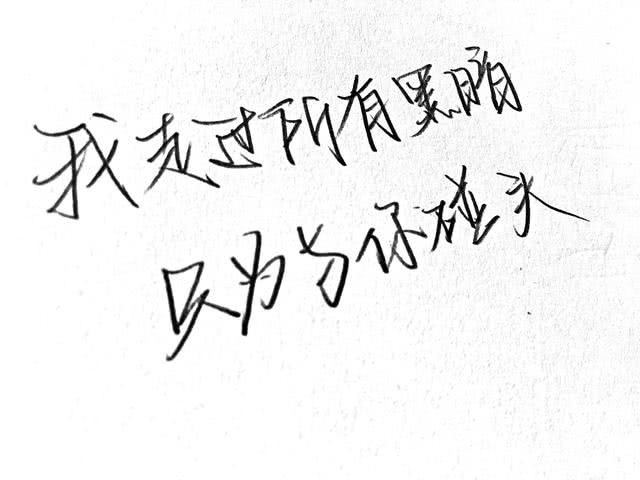 我走过所有黑暗
只为与你碰头